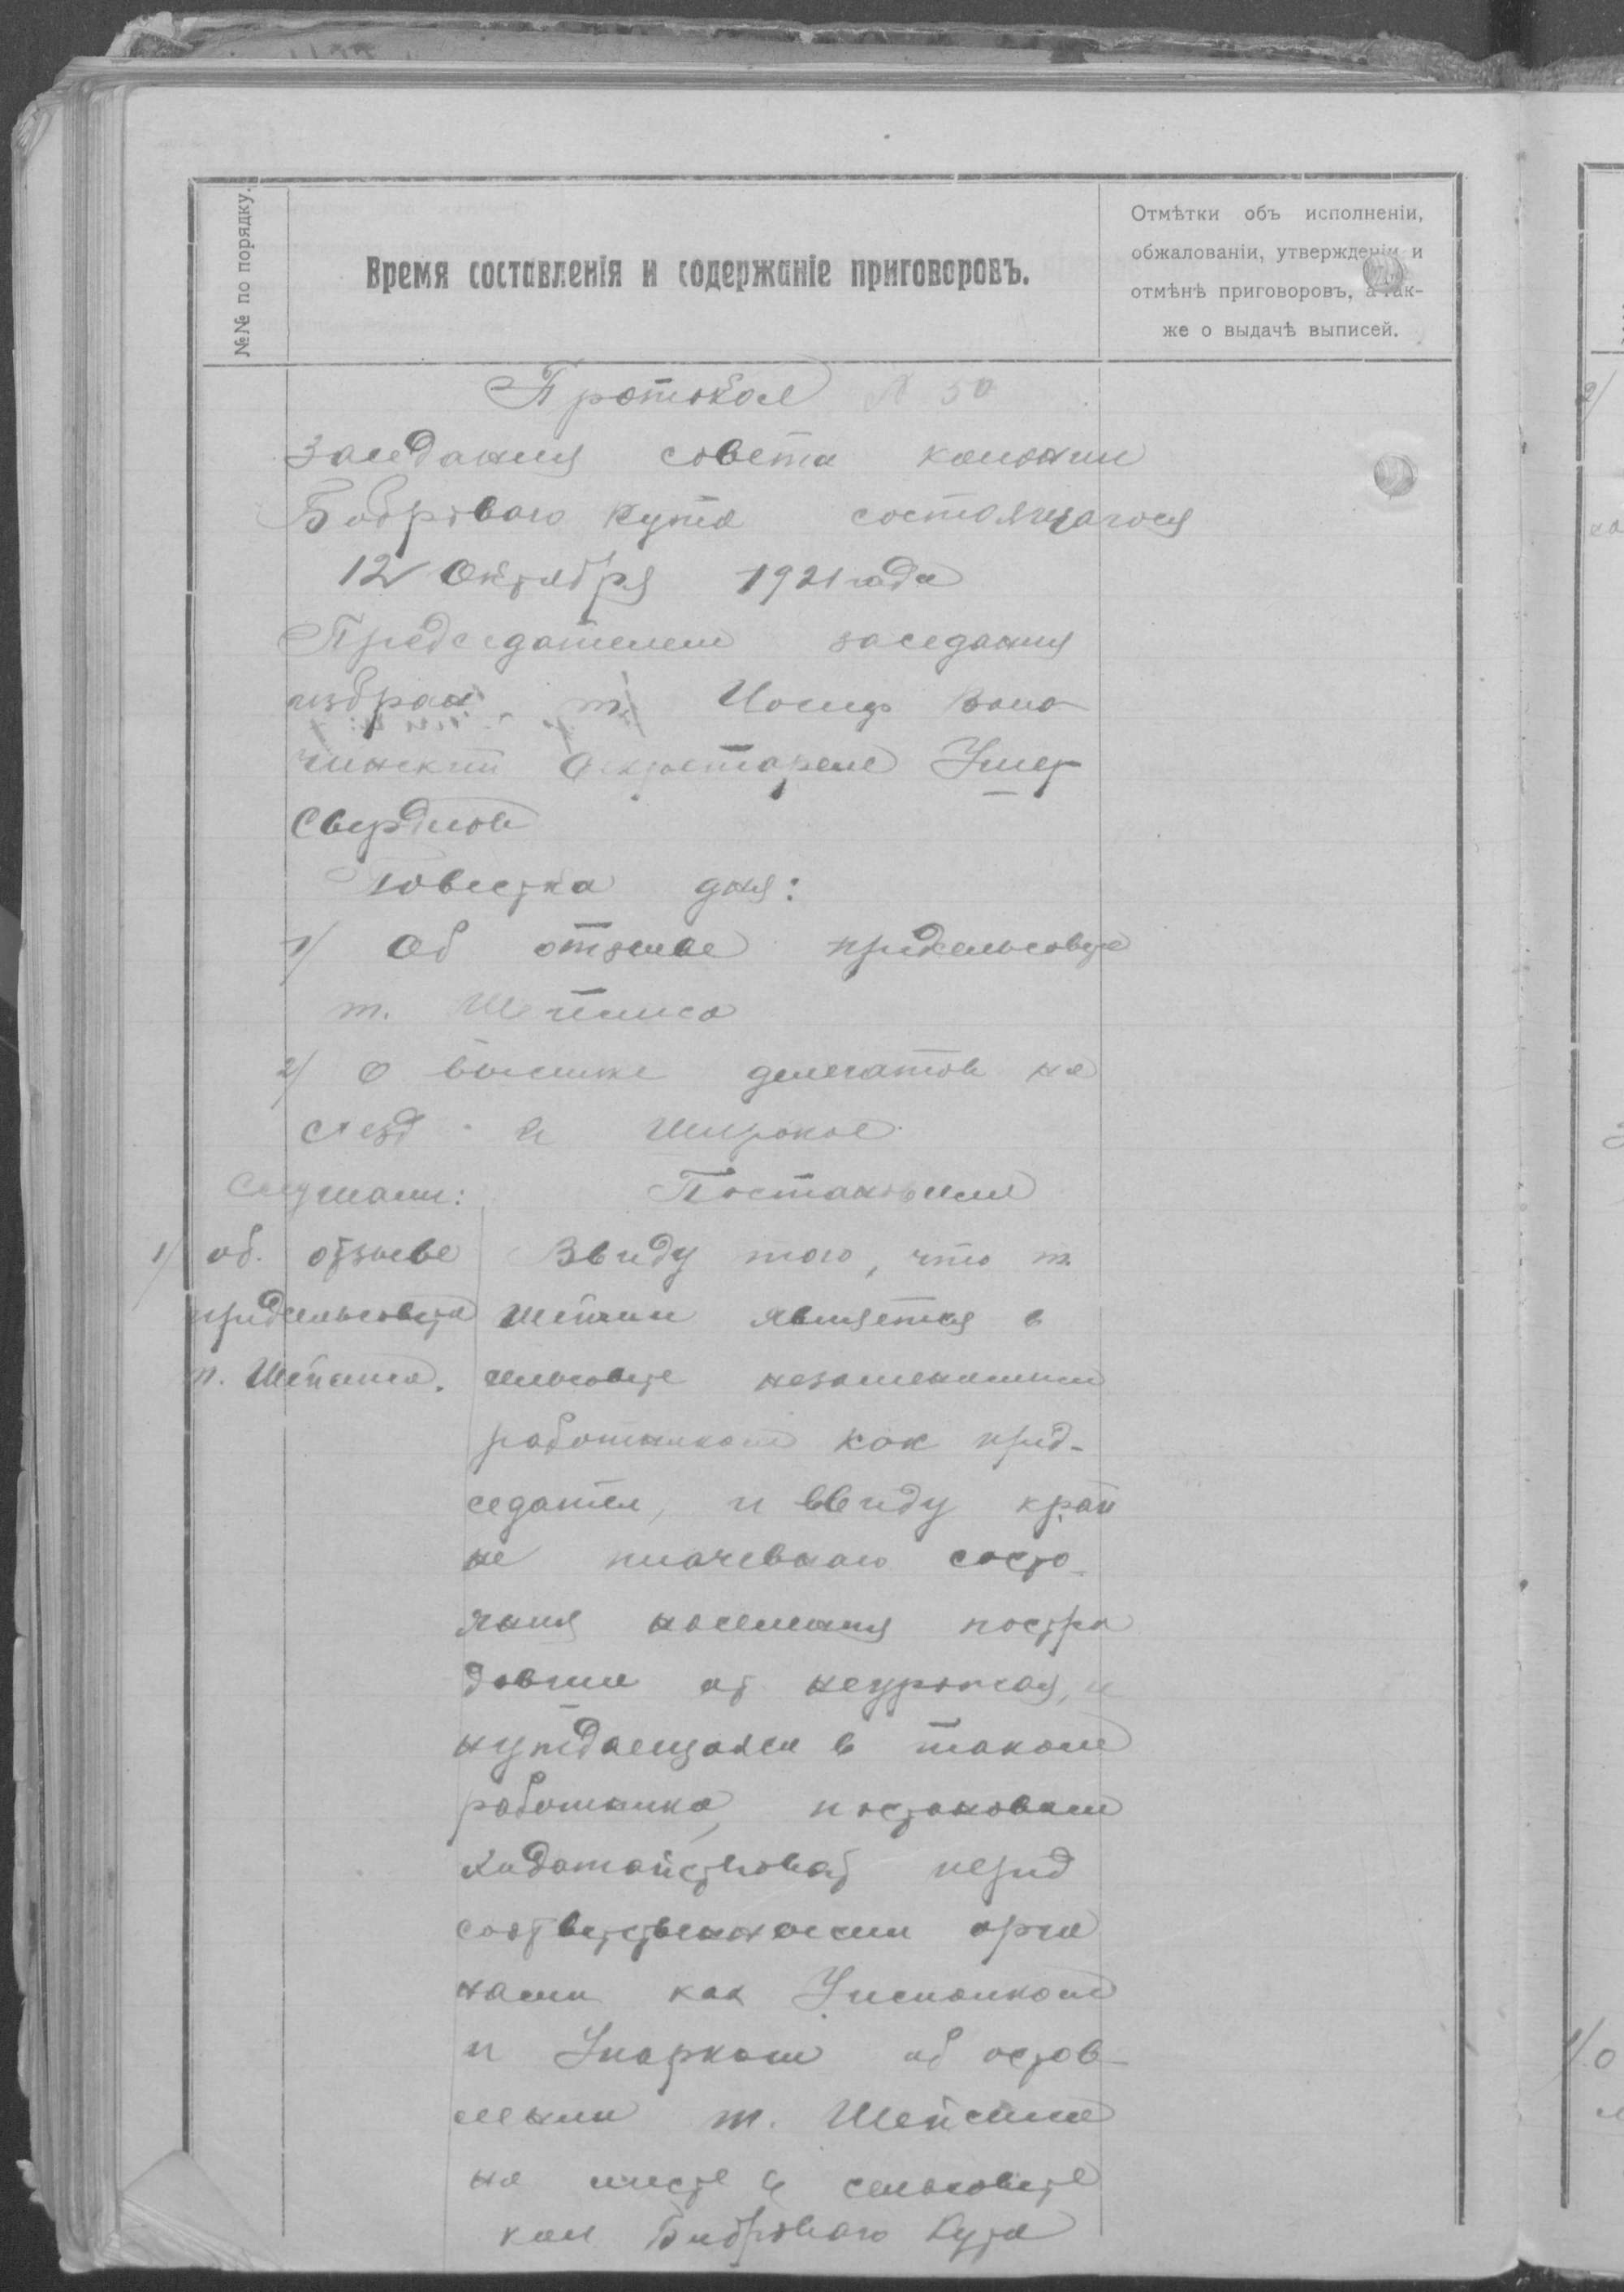 №№ по порядку.
Время составленія и содержаніе приговоровъ.
Отмѣтки объ исполненіи,
обжалованіи, утвержденіи и
отмѣнѣ приговоровъ, а так-
же о выдачѣ выписей.
Протокол № 50
заседания совета колонии
Бобрового Кута состоящагося
12 Октября 1921 года
Председателем заседания
избран т. Иосиф
Секретарем Умер
Свердлов
Повестка дня:
1/ Об отзыве предсельсовета
т. Шейнина
2/ О высылке делегатов на
с'езд в Широкое.
Слушали: Постановили
1/ об. отзыве
предсельсовета
т. Шейнина.
Ввиду того, что т.
Шейнин является в
сельсовете незаменимым
работником как пред-
седател, и ввиду край
не плачевнаго состо-
яния населения постра
давши от неурожая, и
нуждающаяся в таком
работника, постановили
ходатайствоват перед
соответственными орга
нами как Уисполком
и Упарком об остав-
лении т. Шейнина
на месте в сельсовете
кол Бобрового Кута